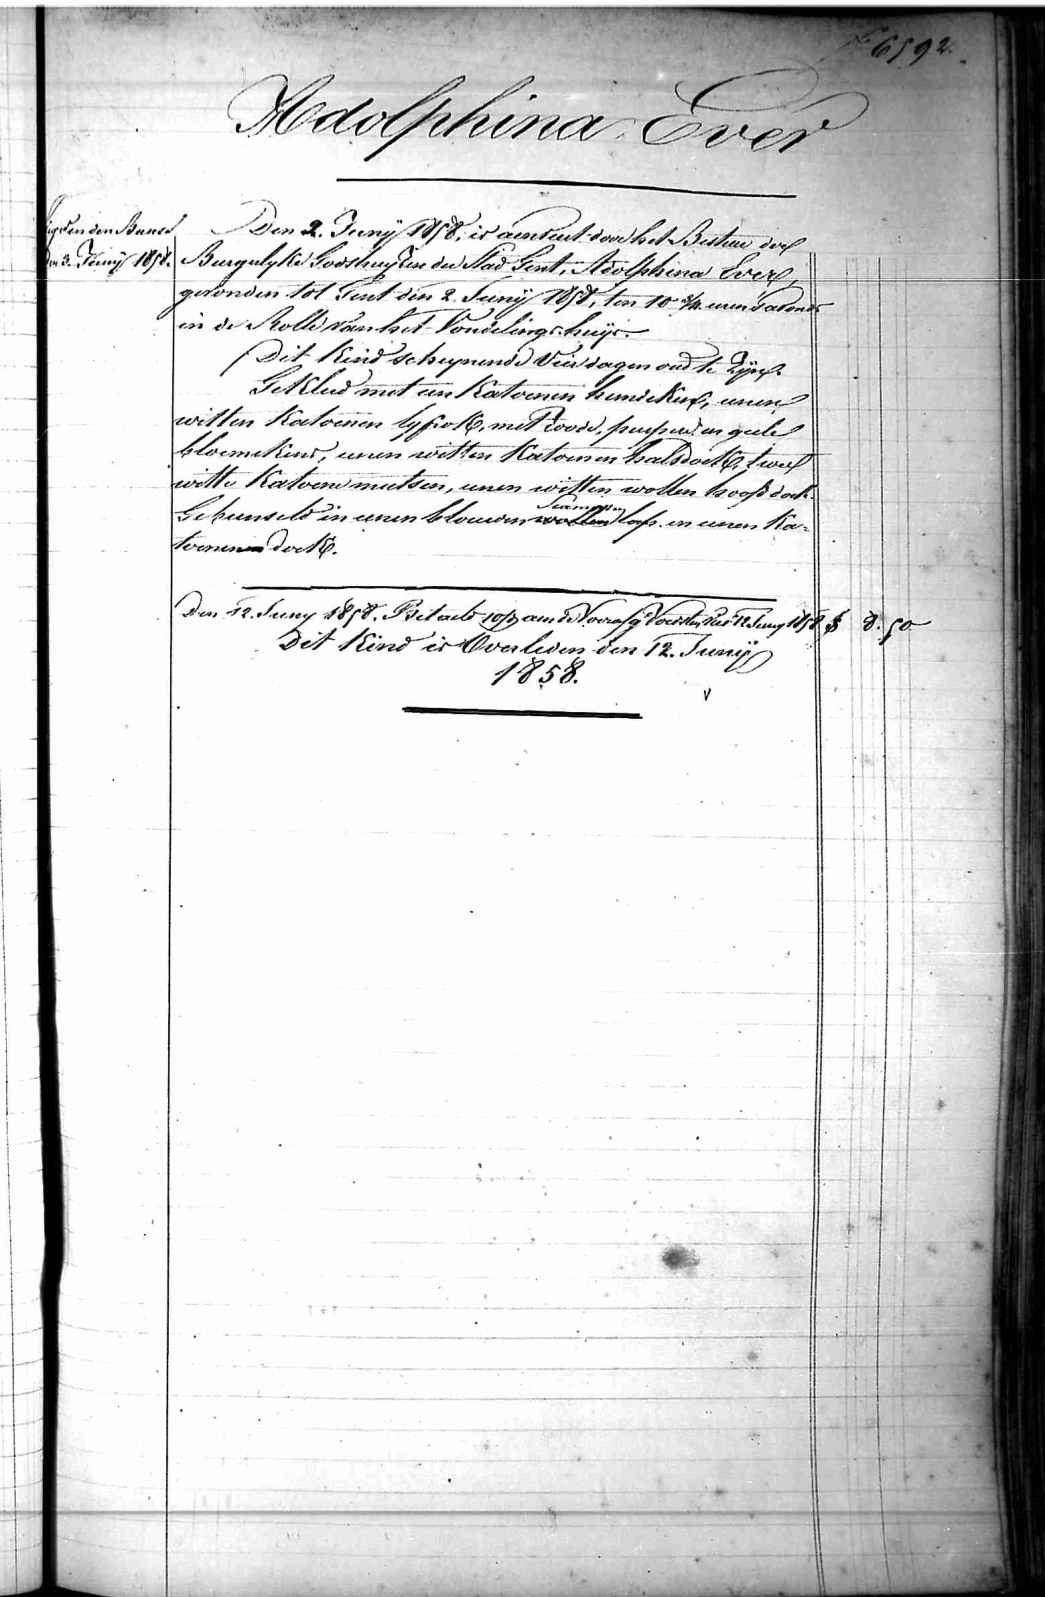 6592.
Adolphina Ever
den Bureel
3. Junij 1858.
Den 2. Junij 1858, is aenveert door het Bestuer der
Burgelyke Godshuyzen der Stad Gent, Adolphina Ever,
gevonden tot Gent den 2. Junij 1858, ten 10 3/4 uren 's avonds
in de Rolle van het Vondelingshuijs.
Dit Kind schynende vier dagen oud te Zijn.
Gekleed met een Katoenen hemdeken, eenen
witten Katoenen lyfrok, met Roode, purpere en geele
bloemekens, eenen witten Katoenen halsdoek, twee
witte Katoene mutsen, eenen witten wollen hoofddoek.
Gebunseld in eenen blauwen wollen lap. en eenen Ka-
toenen doek.
Den 12. Juny 1858. Betaeld aen de Voorsg. Voedster 12 Juny 1858 8.50
Dit Kind is Overleden den 12. Junij
1858.